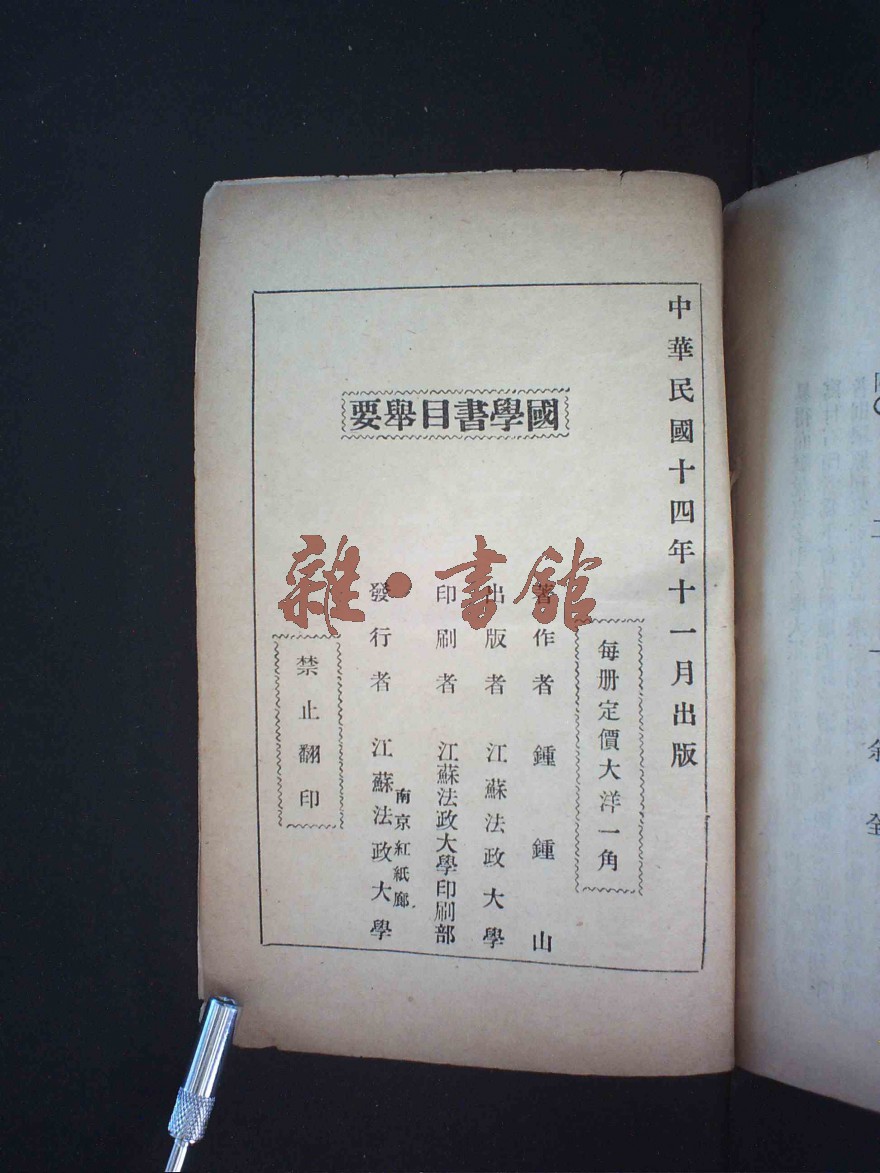 中華民國十四年十一月出版
國學書目舉要
每册定價大洋一角
著作者 鍾鍾山
出版者 江蘇法政大學
印刷者 江蘇法政大學印刷部
發行者 南京紅紙廊 江蘇法政大學
禁止翻印
雜·書館